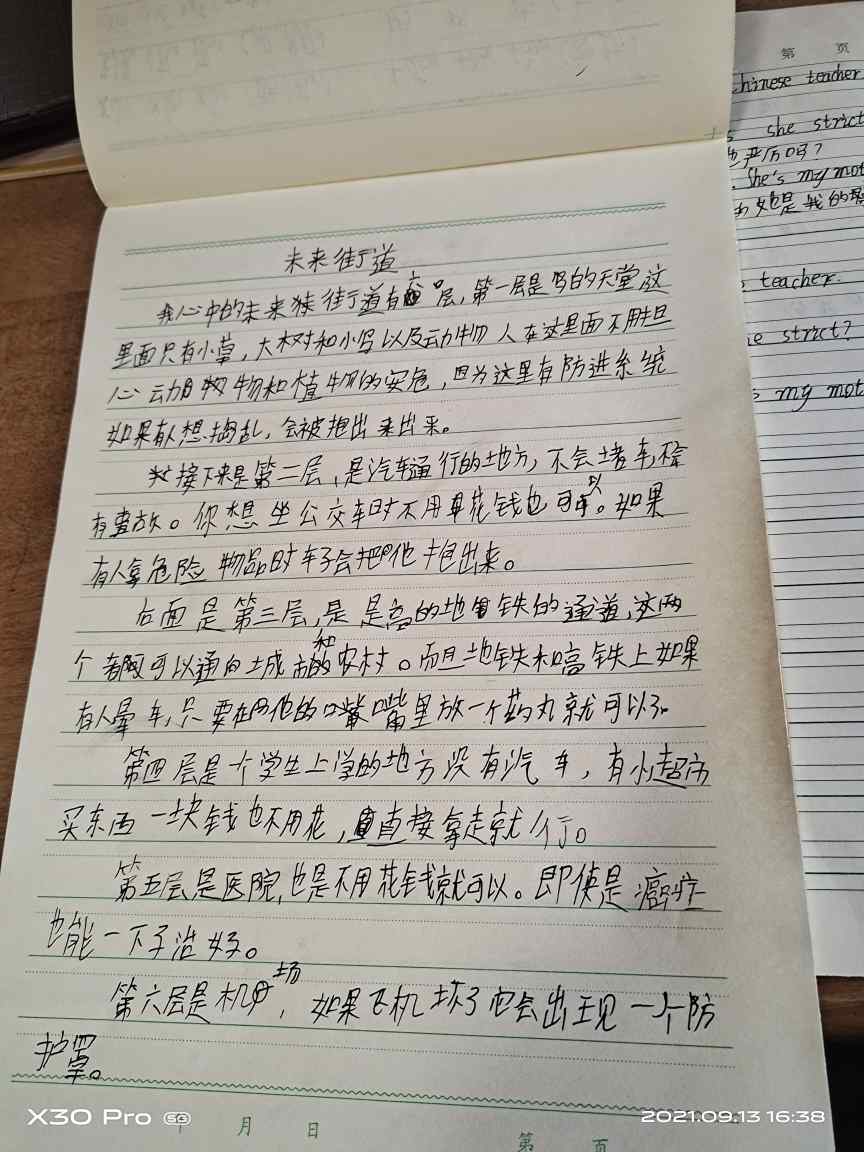 未来街道
我心中的未来街道有六层,第一层是鸟的天堂这
里面只有小草,大树和小鸟以及动物人在这里面不用担
心动物和植物的安危,因为这里有防进系统
如果有人想捣乱,会被抱出来出来。
接下来是第二层,是汽车通行的地方,不会堵车,
有事故。你想坐公交车时不用花钱也可以。如果
有人拿危险物品时车子会把他抱出来。
右面是第三层,是高的地铁的通道,这两
个都可以通向城市和农村。而且地铁和高铁上如果
有人晕车,只要在他的嘴里放一个药丸就可以了。
第四层是个学生上学的地方没有汽车,有小超市
买东西一块钱也不用花,直接拿走就行。
第五层是医院,也是不用花钱就可以。即使是癌症
也能一下子治好。
第六层是机场,如果飞机坏了它会出现一个防
护罩。
X30 Pro 5G
2021.09.13 16:38
月 日
第 页
第 页
Chinese teacher
she strict
严厉吗?
She's my mot
是我的
teacher.
e strict?
my mot